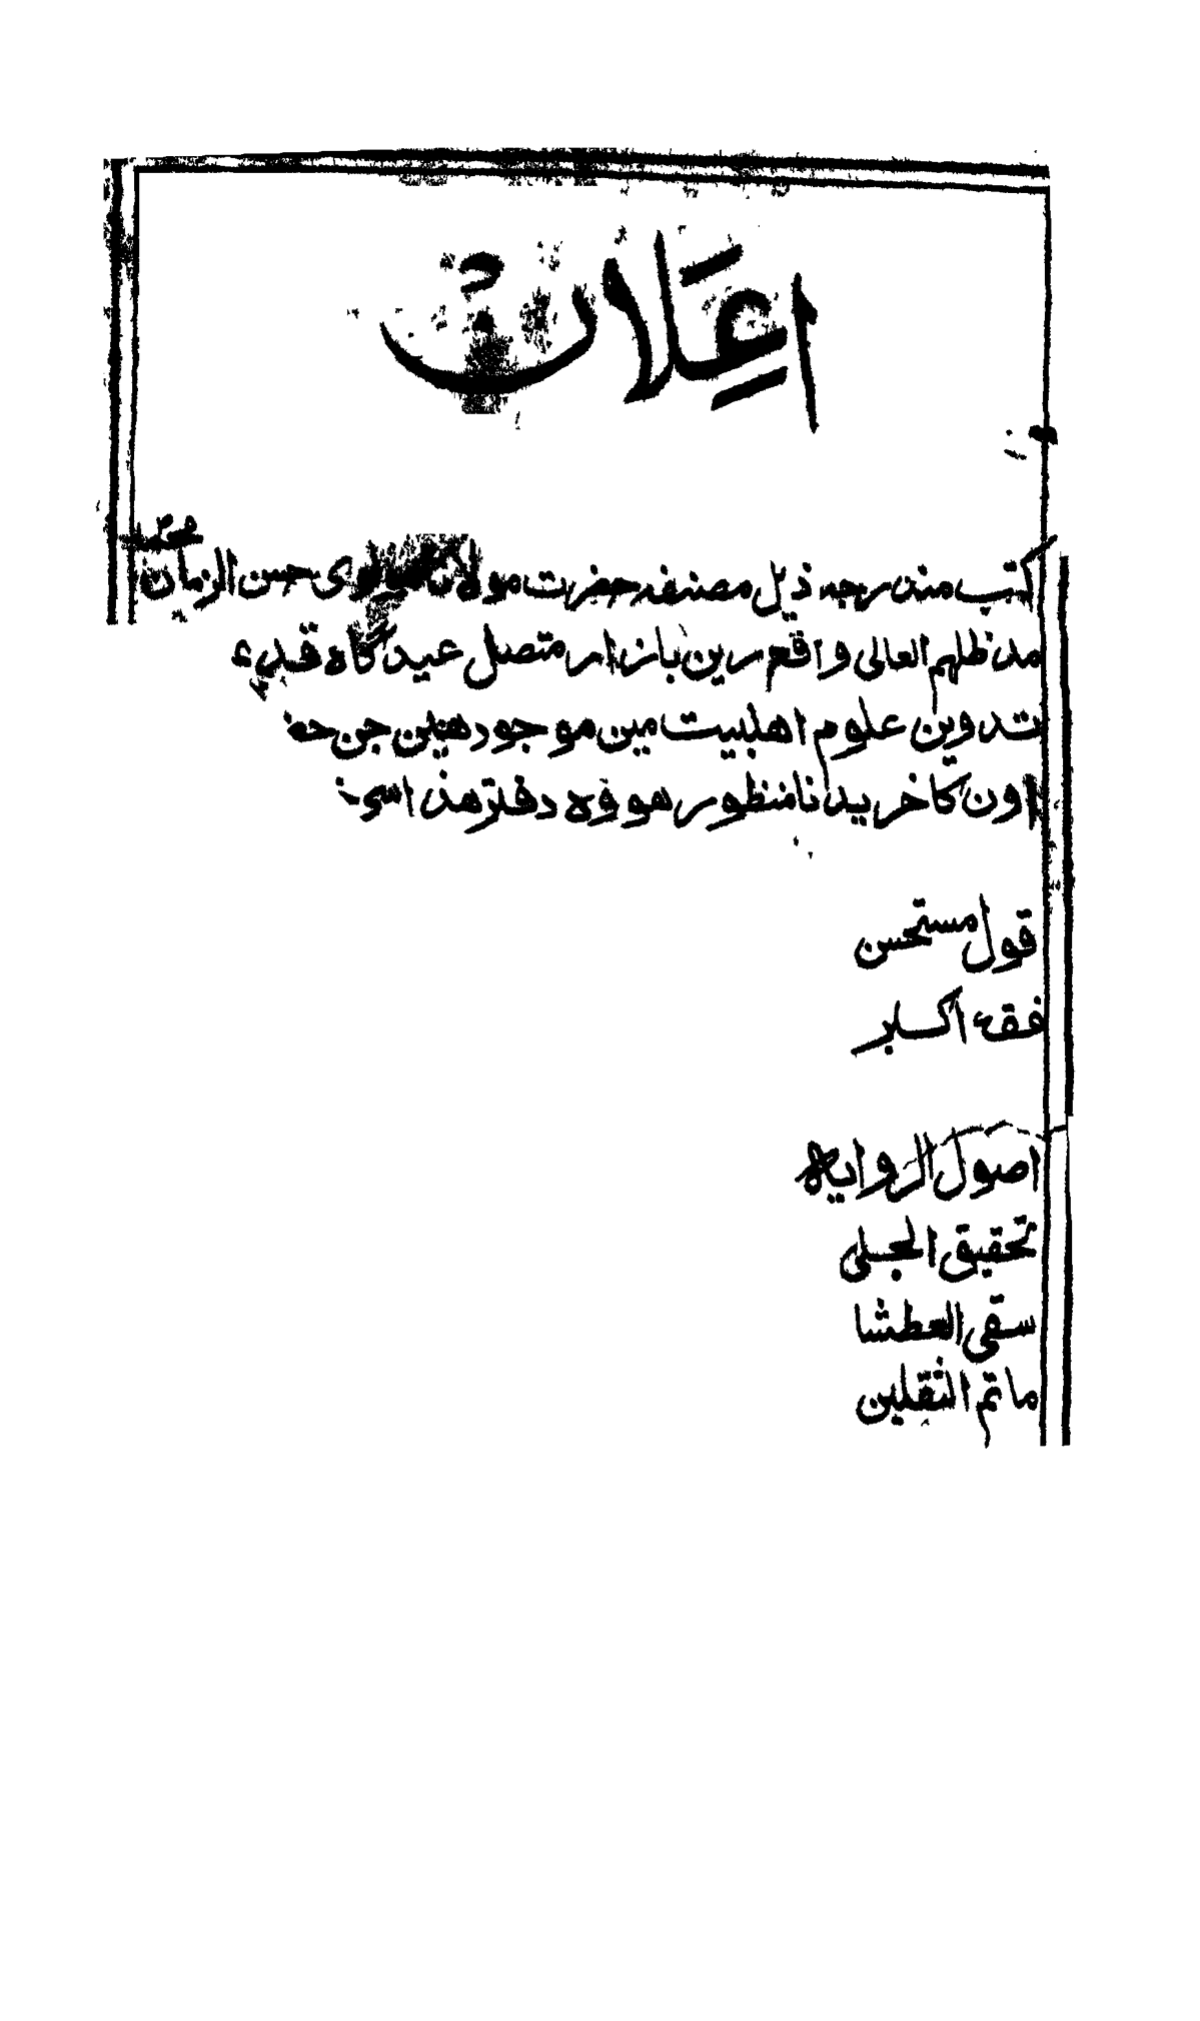 اعلان
کتب مندرجہ ذیل مصنفہ حضرت مولانا مولوی حسن الزمان محمد
مدظلهم العالی واقع رین بازار متصل عیدگاہ قدیم
تدوین علوم اهلبیت مین موجود هین جن حض
اون کا خریدنا منظور هو وہ دفتر هذا سی
قول مستحسن
فقہ اکبر
اصول الروایہ
تحقیق الجلی
سقی العطشا
ماتم الثقلین